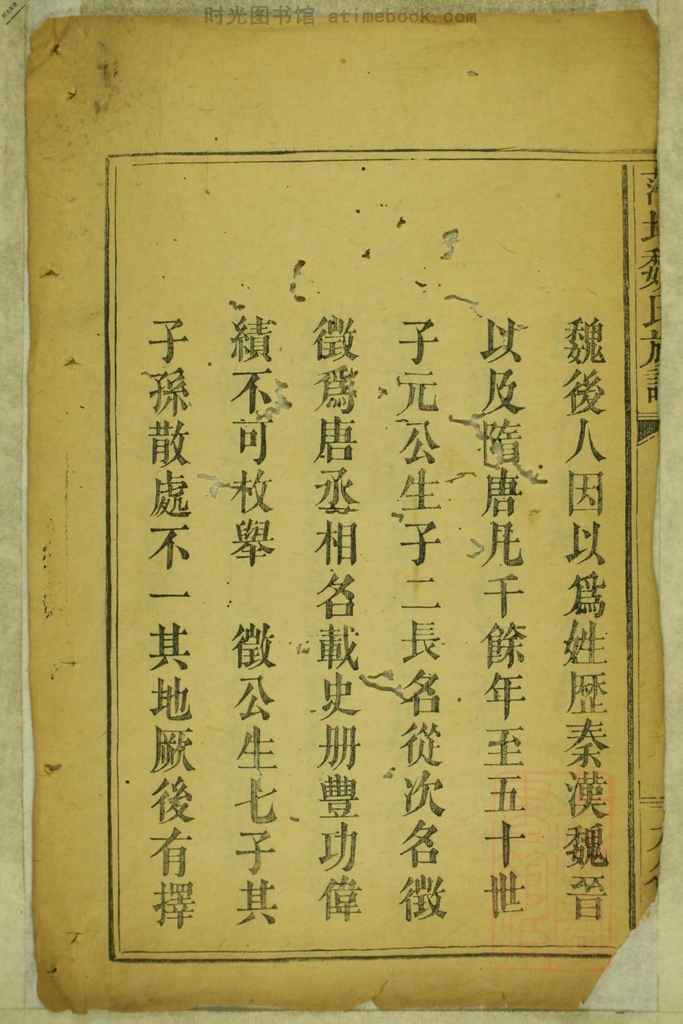 时光图书馆 atimebook.com
魏氏族譜
魏後人因以爲姓歴秦漢魏晉
以及隋唐凡千餘年至五十世
子元公生子二長名從次名徵
徵爲唐丞相名載史册豐功偉
績不可枚舉 徵公生七子其
子孫散處不一其地厥後有擇